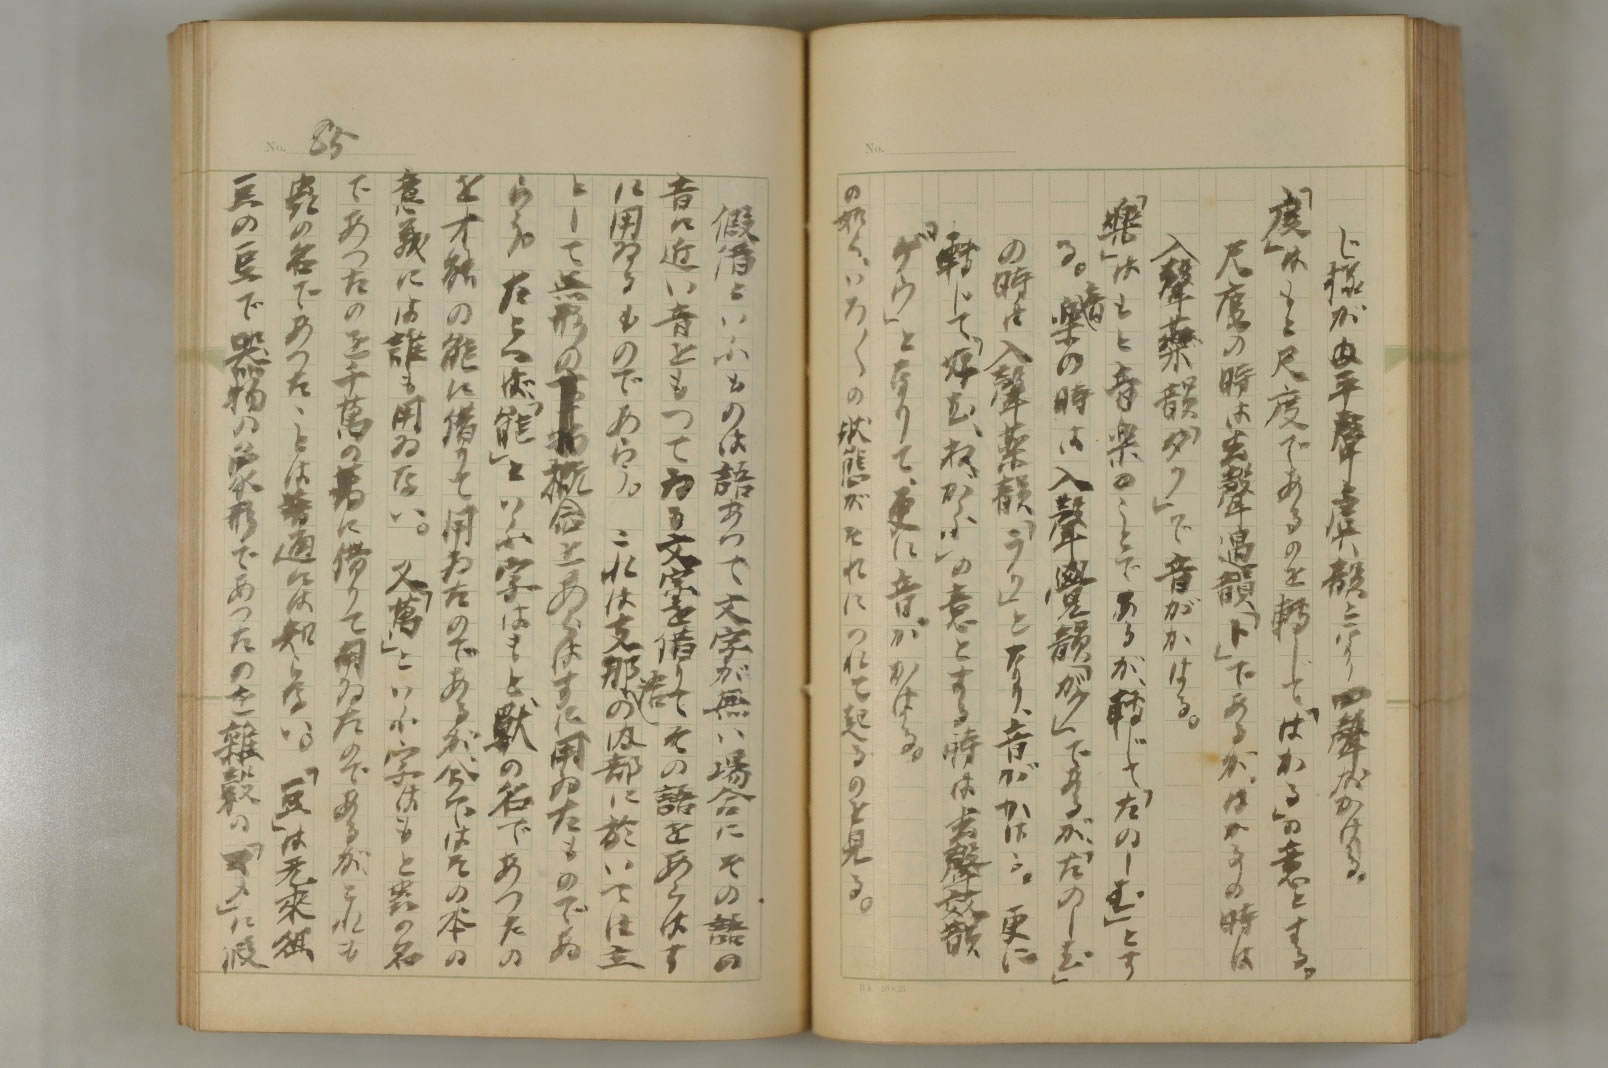 No.
じ様が由平聲虞韻となり四聲がかはる。
「度」はもと尺度であるのを轉じて「はかる」の意とする。
尺度の時は去聲遇韻「ト」であるが、はかるの時は
入聲藥韻「タク」で音がかはる。
「樂」はもと音楽のことであるが、轉じて「たのしむ」とす
る。音楽の時は入聲覺韻「ガク」であるが、「たのしむ」
の時は入聲藥韻「ラク」となり、音がかはる。更に
轉じて「好む、ねがふ」の意とする時は去聲效韻
「ゲウ」となりて、更に音がかはる。
の如く、いろ〱の状態がそれにつれて起るのを見る。
No. 85
假借といふものは語あつて文字が無い場合にその語の
音に近い音をもつてゐる文字を借りてその語をあらはす
に用ゐるものであらう。これは支那の後部に於いては主
として無形の概念をあらはすに用ゐたものであ
らう。たとへば「能」といふ字はもと獸の名であつたの
を才能の能に借りて用ゐたのであるが、今ではその本の
意義には誰も用ゐない。又「萬」といふ字はもと蟲の名
であつたのを千萬の萬に借りて用ゐたのであるがこれも
蟲の名であつたことは普通には知らない。「豆」は元來俎
豆の豆で器物の象形であつたのを雜穀の「マメ」に假